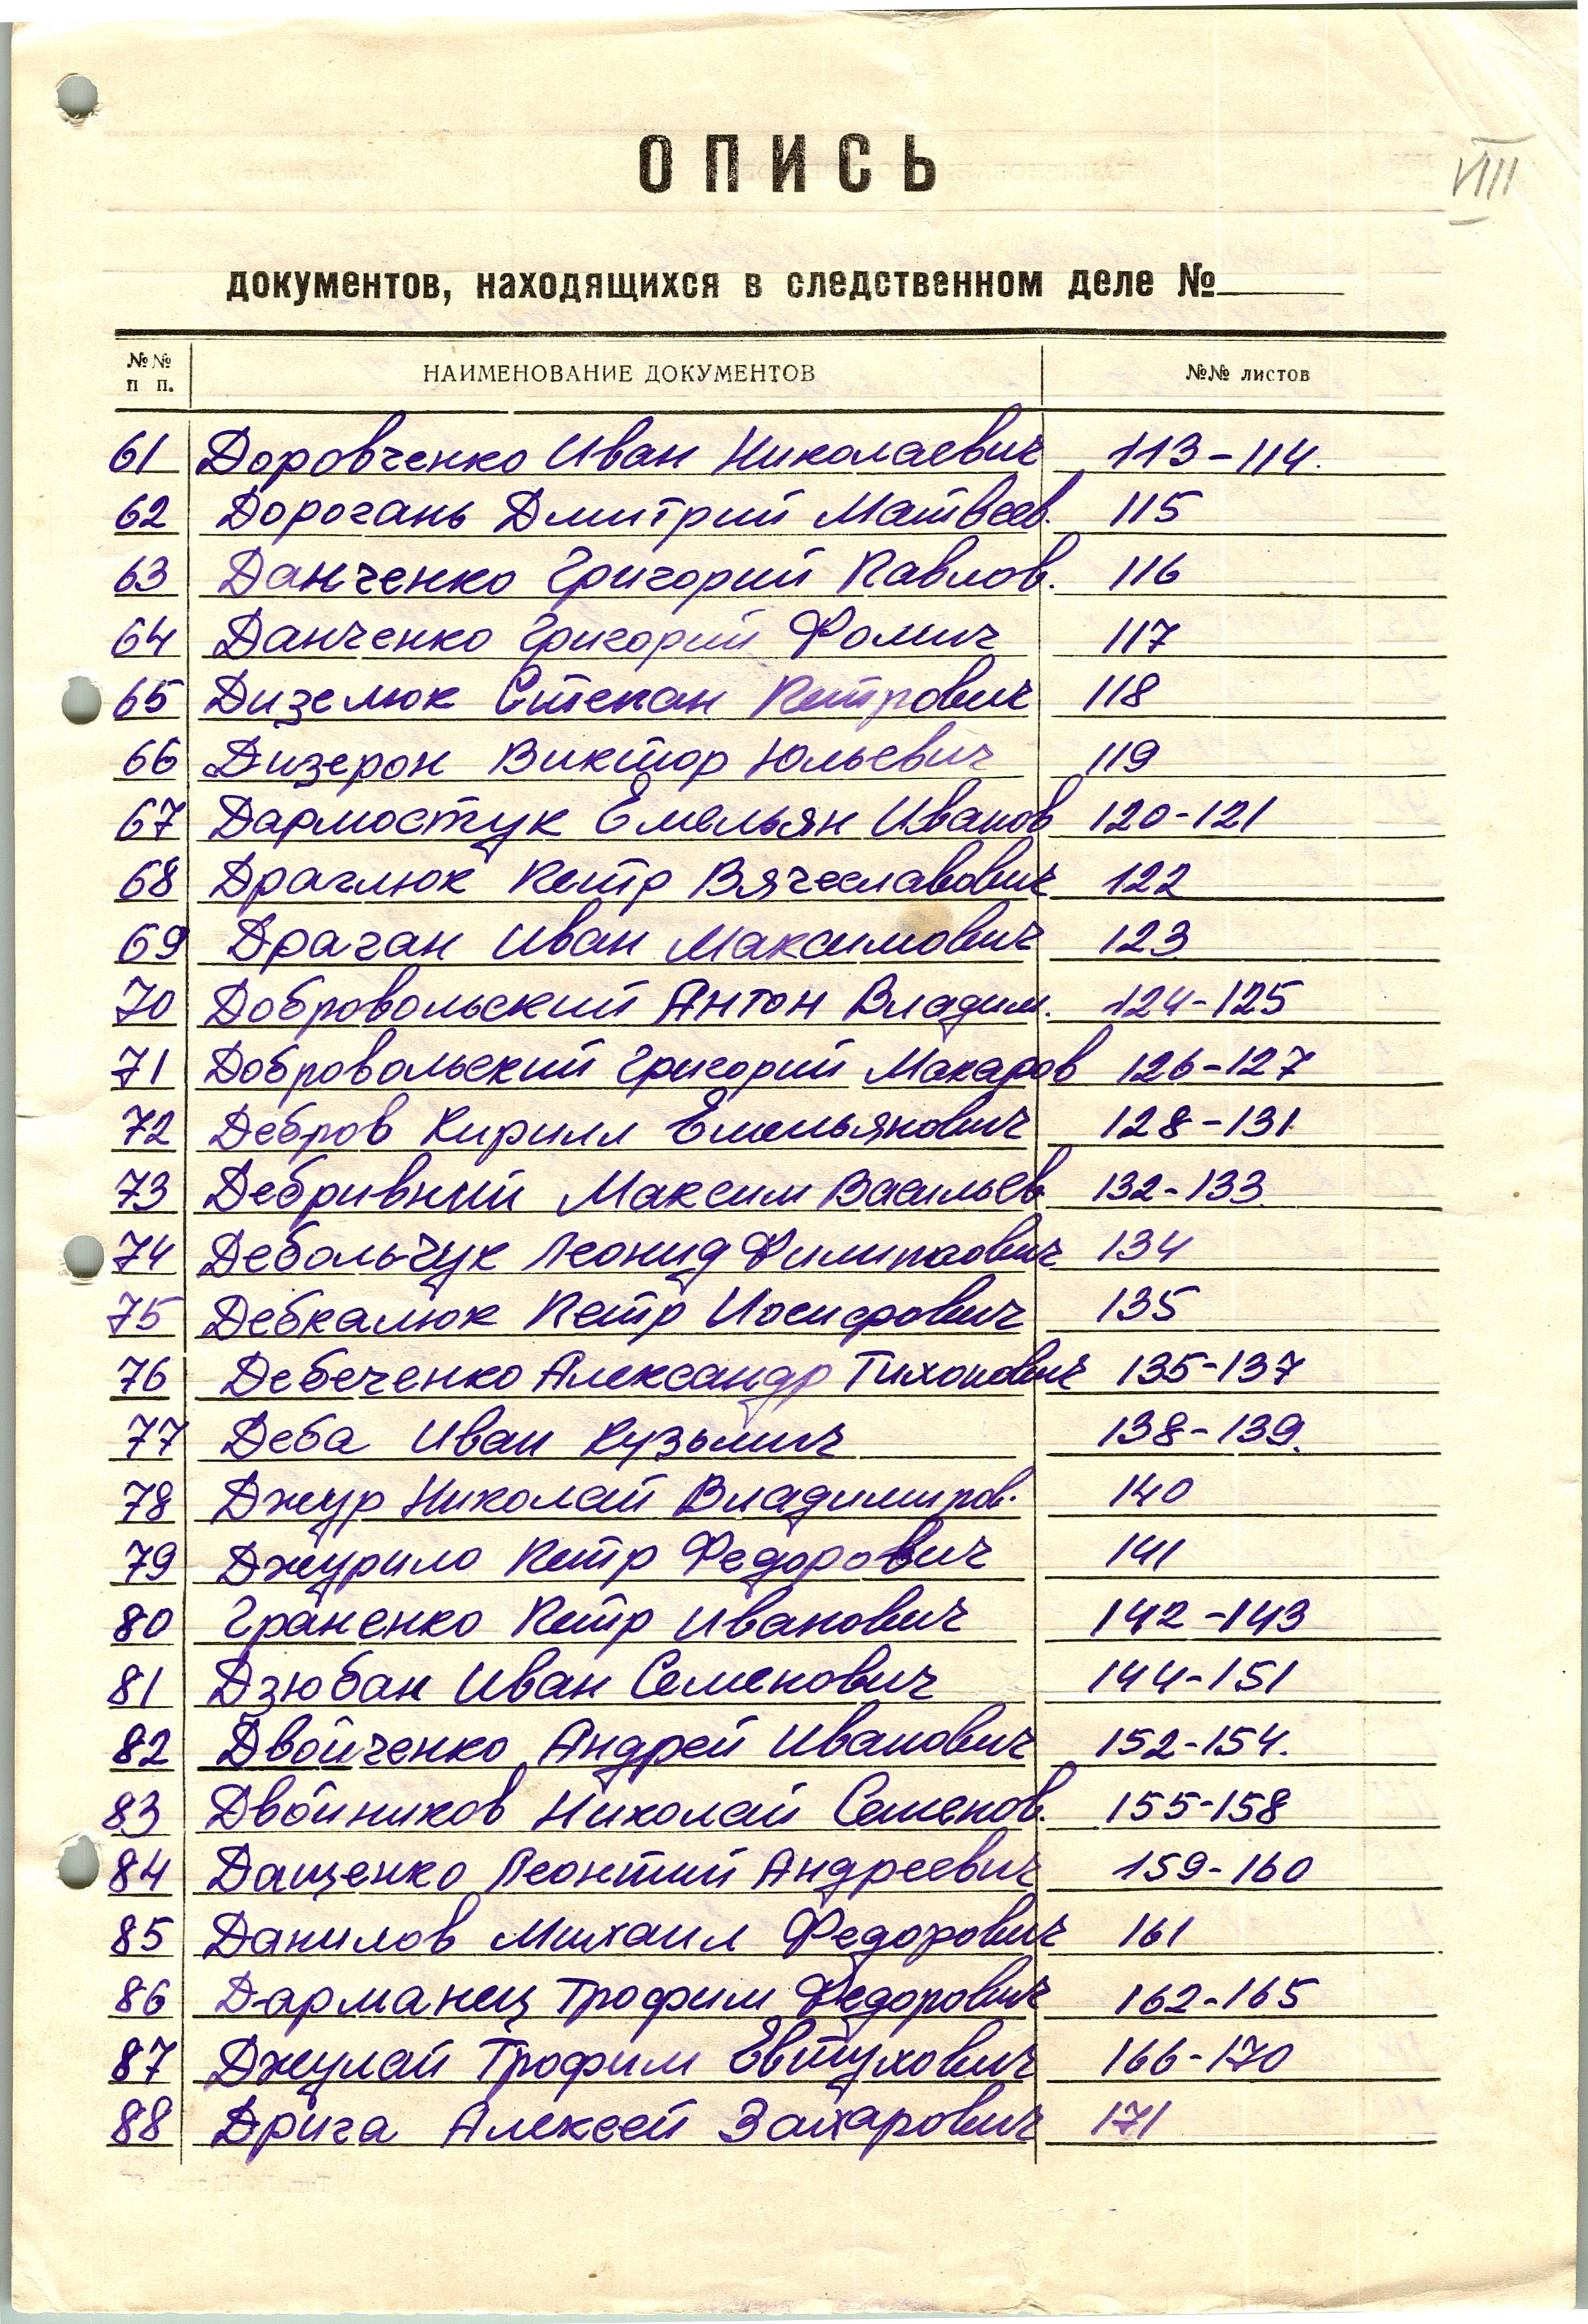 VIII
ОПИСЬ
документов, находящихся в следственном деле №
№№ п п. НАИМЕНОВАНИЕ ДОКУМЕНТОВ №№ листов
61 Доровченко Иван Николаевич 113-114.
62 Дорогань Дмитрий Матвеев. 115
63 Данченко Григорий Павлов. 116
64 Данченко Григорий Фомич 117
65 Дизелюк Степан Петрович 118
66 Дизерон Виктор Юльевич 119
67 Дармостук Емельян Иванов 120-121
68 Драглюк Петр Вячеславович 122
69 Драган Иван Максимович 123
70 Добровольский Антон Владим. 124-125
71 Добровольский Григорий Макаров 126-127
72 Дебров Кирилл Емельянович 128-131
73 Дебривний Максим Васильев. 132-133
74 Дебольчук Леонид Филиппович 134
75 Дебкалюк Петр Иосифович 135
76 Дебеченко Александр Тихонович 135-137
77 Деба Иван Кузьмич 138-139.
78 Джур Николай Владимиров. 140
79 Джурило Петр Федорович 141
80 Граненко Петр Иванович 142-143
81 Дзюбан Иван Семенович 144-151
82 Двойченко Андрей Иванович 152-154.
83 Двойников Николай Семенов. 155-158
84 Дащенко Леонтий Андреевич 159-160
85 Данилов Михаил Федорович 161
86 Дарманец Трофим Федорович 162-165
87 Джулай Трофим Евтухович 166-170
88 Дрига Алексей Захарович 171